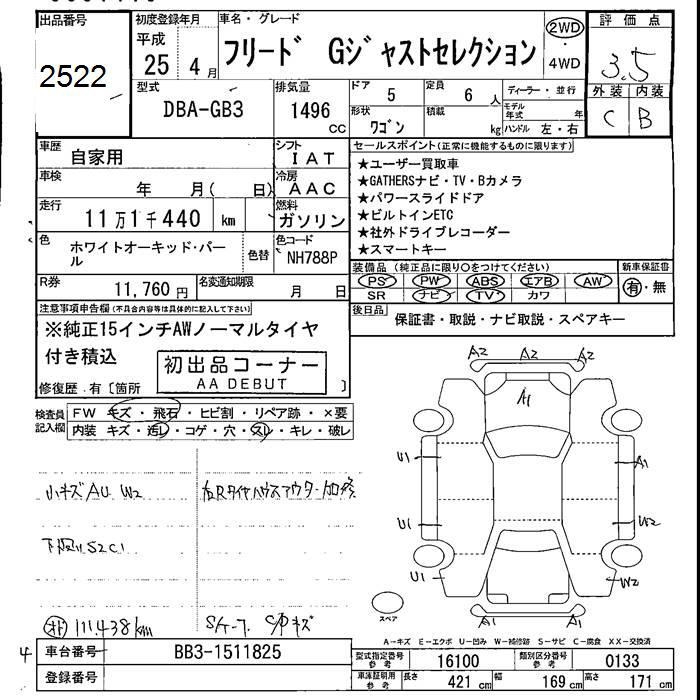 出品番号
2522
初度登録年月
平成
25 4月
車名・グレード
フリード Gジャストセレクション
2WD
・
4WD
評価点
3.5
外装 内装
C B
型式
DBA-GB3
排気量
1496
CC
ドア
5
定員
6 人
形状
ワゴン
積載
kg
ディーラー・並行
モデル年式 年
ハンドル 左・右
車歴
自家用
シフト
IAT
車検
年 月( 日)
冷房
AAC
走行
11万1千440 km
燃料
ガソリン
色
ホワイトオーキッド・パール
色替
色コード
NH788P
R券
11,760円
名変通知期限
月 日
セールスポイント(正常に機能するものに限ります)
★ユーザー買取車
★GATHERSナビ・TV・Bカメラ
★パワースライドドア
★ビルトインETC
★社外ドライブレコーダー
★スマートキー
装備品(純正品に限り○をつけてください)
PS PW ABS エアB AW
SR ナビ TV カワ
新車保証書
有・無
後日品
保証書・取説・ナビ取説・スペアキー
注意事項申告欄(不具合内容等は具体的に記入して下さい)
※純正15インチAWノーマルタイヤ
付き積込
初出品コーナー
AA DEBUT
修復歴・有〔箇所 〕
検査員
記入欄
FW キズ・飛石・ヒビ割・リペア跡・×要
内装 キズ・汚レ・コゲ・穴・スレ・キレ・破レ
小キズAU W2
下廻りS2C1
111.438km
キズ
A2 A2 A2
A1
U1 A1
U1 W2
U1 W2
A1 A1
スペア
A-キズ E-エクボ U-凹み W-補修跡 S-サビ C-腐食 XX-交換済
4
車台番号
BB3-1511825
登録番号
型式指定番号
参考
16100
類別区分番号
参考
0133
車庫証明用
参考
長さ 421 cm 幅 169 cm 高さ 171 cm